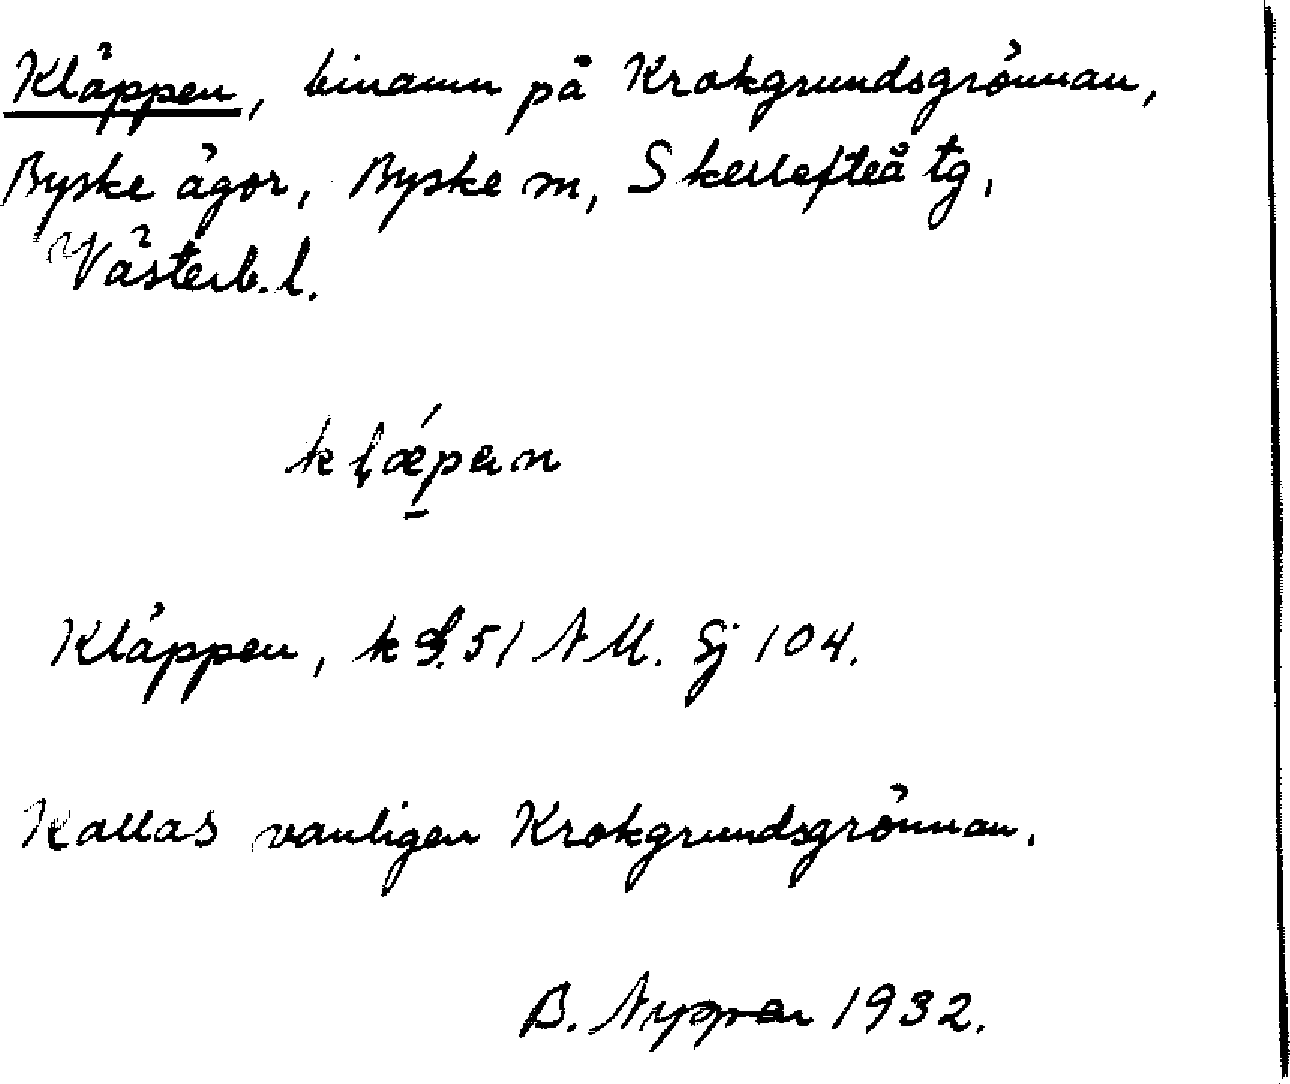 Kläppen, binamn på Krokgrundsgrönnan,
Byske ägor, Byske sn, Skellefteå tg,
Västerb. l.
kḷǽpen
Kläppen, k S. 51 N M. Sj 104.
Kallas vanligen Krokgrundsgrönnan.
B. 1932.